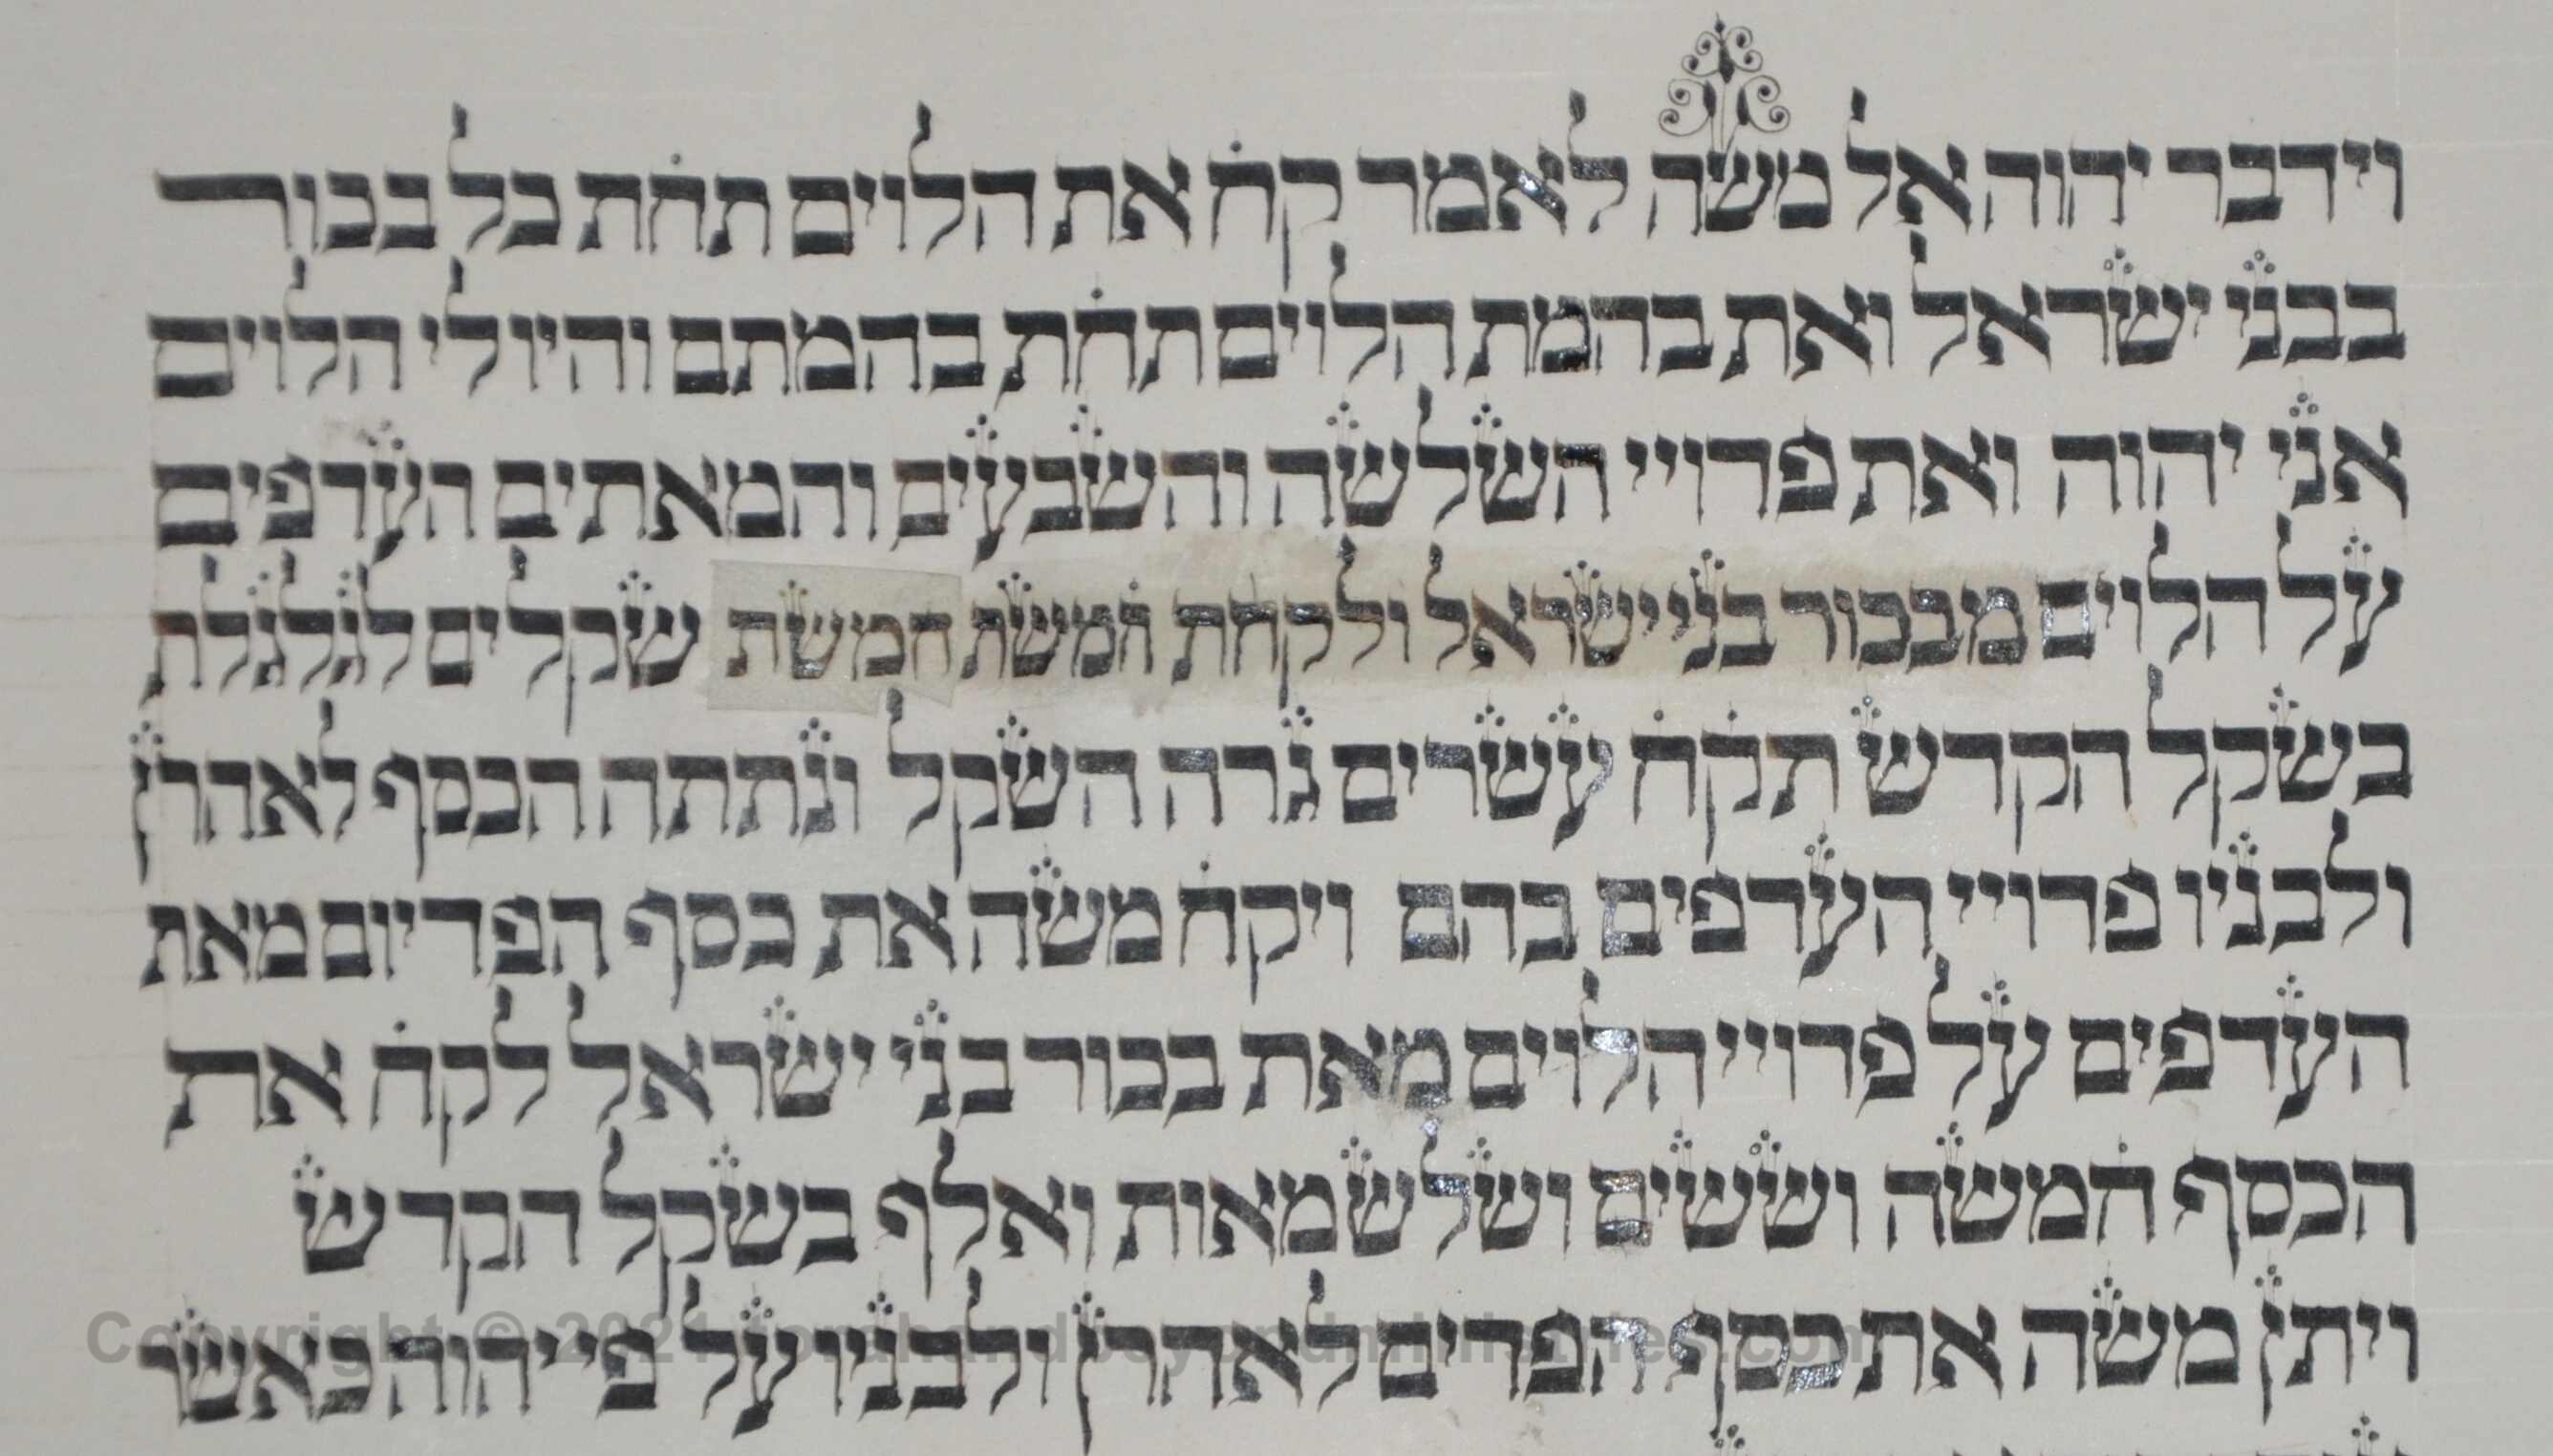 וידבר יהוה אל משה לאמר קח את הלוים תחת כל בכור
בבני ישראל ואת בהמת הלוים תחת בהמתם והיו לי הלוים
אני יהוה ואת פדויי השלשה והשבעים והמאתים העדפים
על הלוים מבכור בני ישראל ולקחת חמשת חמשת שקלים לגלגלת
בשקל הקדש תקח עשרים גרה השקל ונתתה הכסף לאהרן
ולבניו פדויי העדפים בהם ויקח משה את כסף הפדיום מאת
העדפים על פדויי הלוים מאת בכור בני ישראל לקח את
הכסף חמשה וששים ושלש מאות ואלף בשקל הקדש
ויתן משה את כסף הפדים לאהרן ולבניו על פי יהוה כאשר
Copyright © 2021 torahandbeyondministries.com